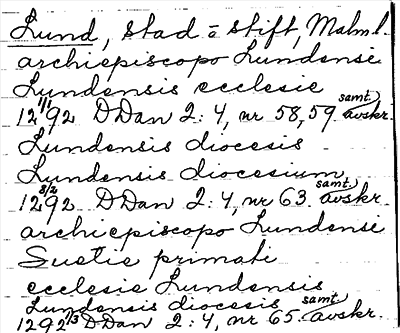 Lund, stad o stift, Malm.l.
archiepiscopo Lundensi
Lundensis ecclesie
12 1/1 92 DDan 2:4, nr 58, 59 samt. avskr.
Lundensis diocesis
Lundensis diocesium
12 3/2 92 DDan 2:4, nr 63 samt. avskr.
archiepiscopo Lundensi
Suetie primati
ecclesie Lundensis
Lundensis diocesis
1292 /3 DDan 2:4, nr 65 samt. avskr.